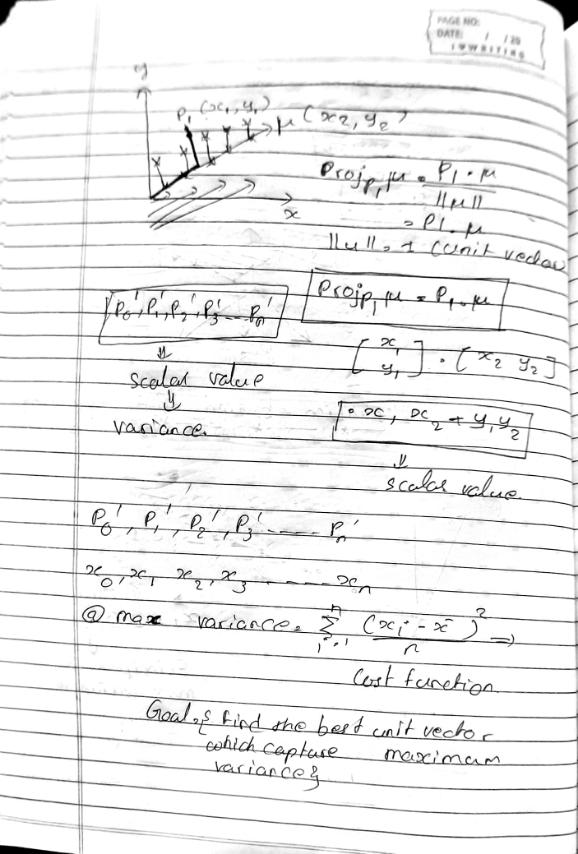 PAGE NO:
DATE: / /20
y
P₁ (x₁, y₁)
μ (x₂, y₂)
x
Proj P₁ μ = P₁ . μ
||μ||
= P1. μ
||u|| = 1 (unit vector
P₀', P₁', P₂', P₃' ---- Pₙ'
Proj P₁ μ = P₁ . μ
⇓
scalar value
⇓
variance.
[x₁ y₁] . [x₂ y₂]
= x₁ x₂ + y₁ y₂
⇓
scalar value.
P₀', P₁', P₂', P₃' ------ Pₙ'
x₀, x₁ x₂, x₃ ------ xₙ
@ max variance = Σ (xᵢ - x̄)² ⇒
n
i=1
n
Cost function
Goal = { find the best unit vector
which capture maximum
variance}